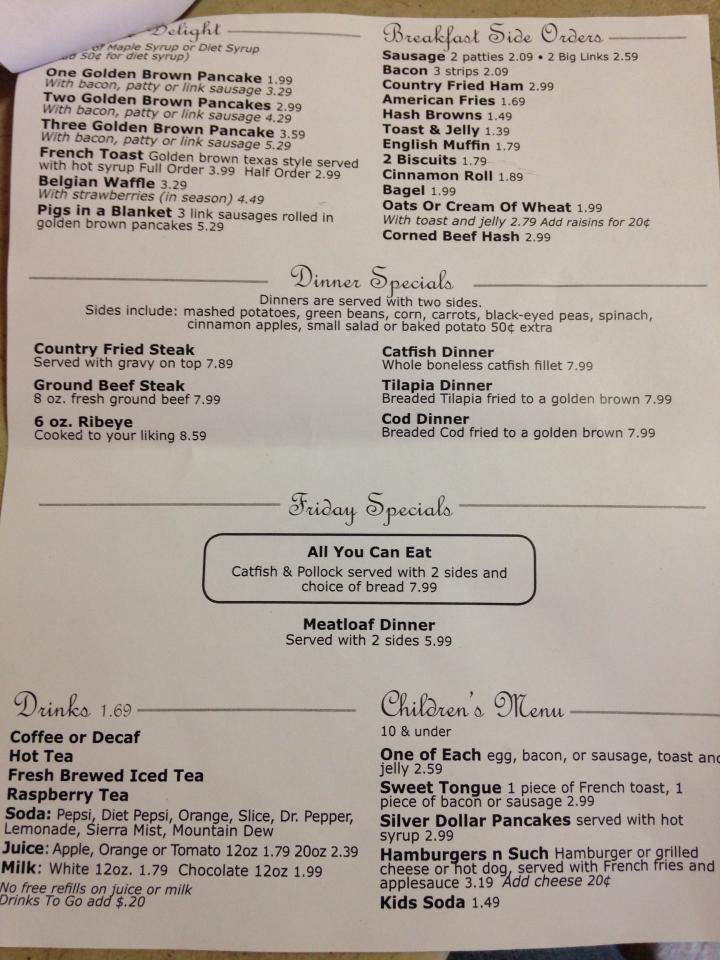 Delight
of Maple Syrup or Diet Syrup
50¢ for diet syrup)
One Golden Brown Pancake 1.99
With bacon, patty or link sausage 3.29
Two Golden Brown Pancakes 2.99
With bacon, patty or link sausage 4.29
Three Golden Brown Pancake 3.59
With bacon, patty or link sausage 5.29
French Toast Golden brown texas style served
with hot syrup Full Order 3.99 Half Order 2.99
Belgian Waffle 3.29
With strawberries (in season) 4.49
Pigs in a Blanket 3 link sausages rolled in
golden brown pancakes 5.29
Breakfast Side Orders
Sausage 2 patties 2.09 • 2 Big Links 2.59
Bacon 3 strips 2.09
Country Fried Ham 2.99
American Fries 1.69
Hash Browns 1.49
Toast & Jelly 1.39
English Muffin 1.79
2 Biscuits 1.79
Cinnamon Roll 1.89
Bagel 1.99
Oats Or Cream Of Wheat 1.99
With toast and jelly 2.79 Add raisins for 20¢
Corned Beef Hash 2.99
Dinner Specials
Dinners are served with two sides.
Sides include: mashed potatoes, green beans, corn, carrots, black-eyed peas, spinach,
cinnamon apples, small salad or baked potato 50¢ extra
Country Fried Steak
Served with gravy on top 7.89
Ground Beef Steak
8 oz. fresh ground beef 7.99
6 oz. Ribeye
Cooked to your liking 8.59
Catfish Dinner
Whole boneless catfish fillet 7.99
Tilapia Dinner
Breaded Tilapia fried to a golden brown 7.99
Cod Dinner
Breaded Cod fried to a golden brown 7.99
Friday Specials
All You Can Eat
Catfish & Pollock served with 2 sides and
choice of bread 7.99
Meatloaf Dinner
Served with 2 sides 5.99
Drinks 1.69
Coffee or Decaf
Hot Tea
Fresh Brewed Iced Tea
Raspberry Tea
Soda: Pepsi, Diet Pepsi, Orange, Slice, Dr. Pepper,
Lemonade, Sierra Mist, Mountain Dew
Juice: Apple, Orange or Tomato 12oz 1.79 20oz 2.39
Milk: White 12oz. 1.79 Chocolate 12oz 1.99
No free refills on juice or milk
Drinks To Go add $.20
Children's Menu
10 & under
One of Each egg, bacon, or sausage, toast and
jelly 2.59
Sweet Tongue 1 piece of French toast, 1
piece of bacon or sausage 2.99
Silver Dollar Pancakes served with hot
syrup 2.99
Hamburgers n Such Hamburger or grilled
cheese or hot dog, served with French fries and
applesauce 3.19 Add cheese 20¢
Kids Soda 1.49